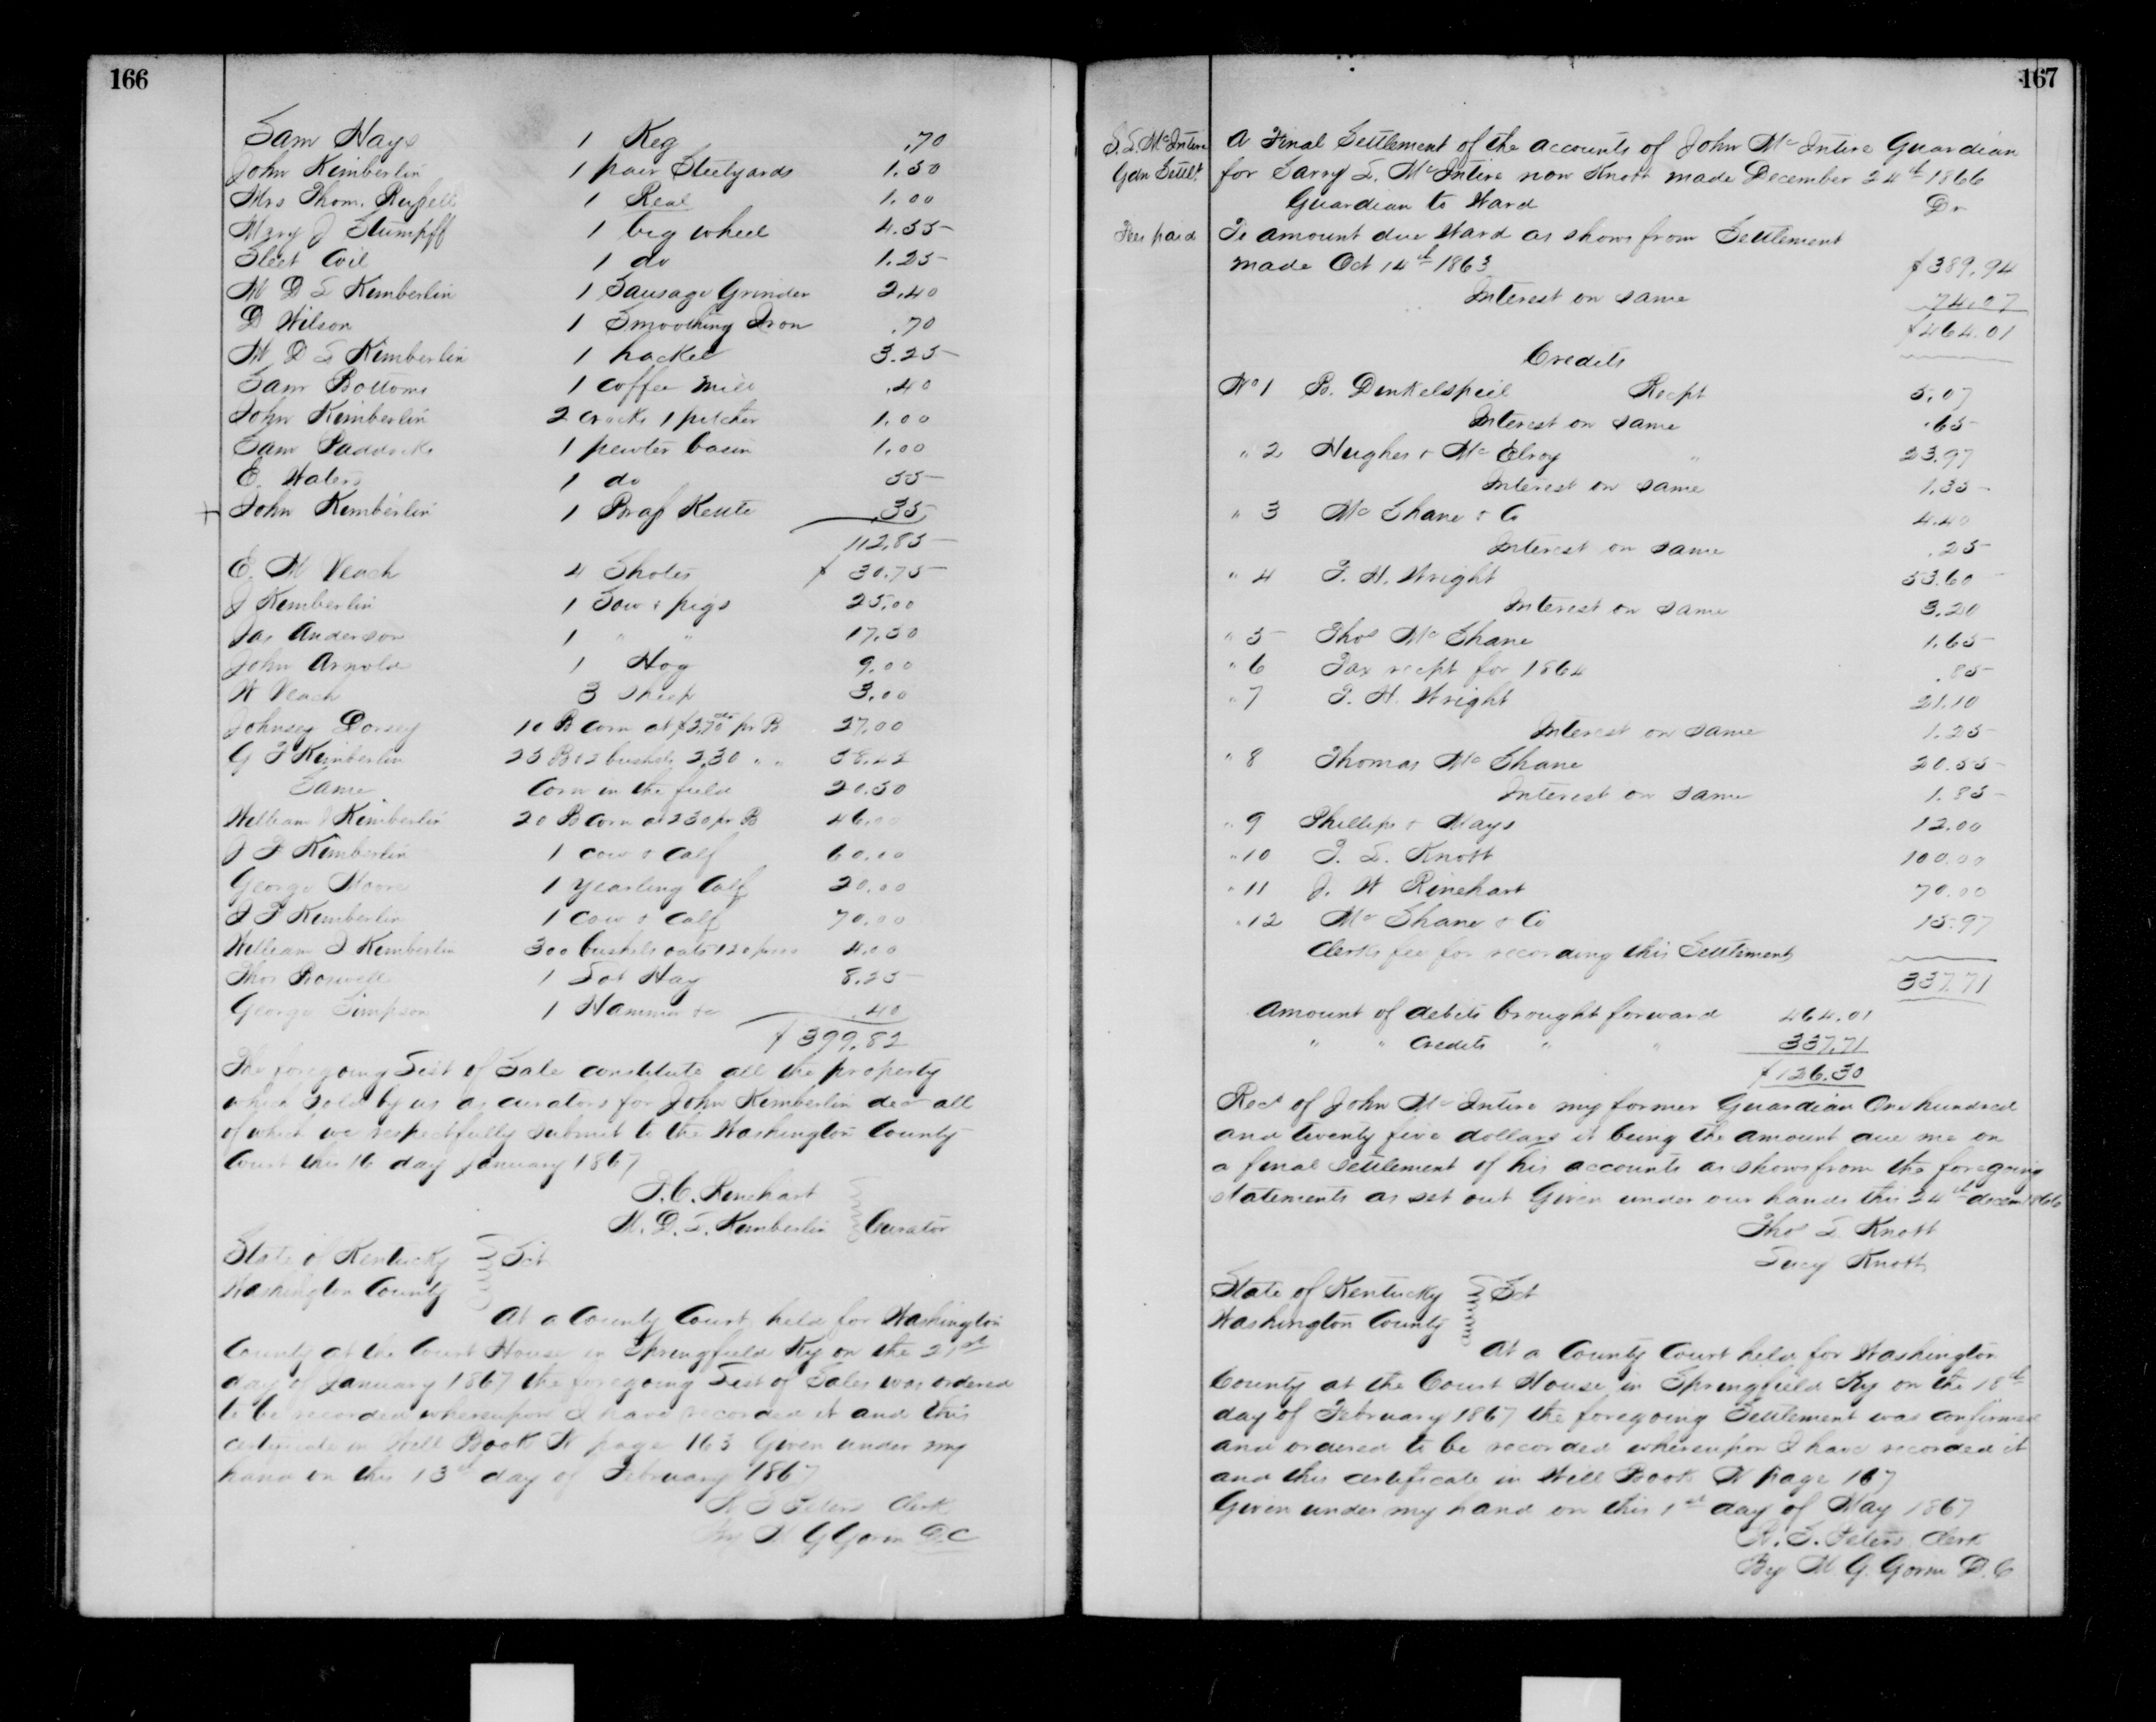 166
Sam Hays 1 Keg .70
John Kimberlin 1 pair Steelyards 1.50
Mrs Thom. Russell 1 Real 1.00
Mary J Stumpff 1 big wheel 4.55
Sleet Coil 1 do 1.25
M D L Kimberlin 1 Sausage Grinder 2.40
D Wilson 1 Smoothing Iron .70
M. D L Kimberlin 1 hackel 3.25
Sam Bottoms 1 coffee mill .40
John Kimberlin 2 crocks 1 pitcher 1.00
Sam Paddocks 1 pewter basin 1.00
E. Waters 1 do 55
John Kimberlin 1 Brass Kettle .35
112.85
E. M Veach 4 Shotes $ 30.75
J Kimberlin 1 Sow & pigs 25.00
Jas Anderson 1 " " 17.50
John Arnold 1 Hog 9.00
W Veach 3 Sheep 3.00
Johnsey Dorsey 10 B corn at $2.70 pr B 27.00
G T Kimberlin 25 B & 2 bushels 2.30 " " 58.22
Same Corn in the field 20.50
William J Kimberlin 20 B Corn at 230 pr B 46.00
J F Kimberlin 1 Cow & Calf 60.00
George Moore 1 Yearling Calf 20.00
J F Kimberlin 1 Cow & Calf 70.00
William J Kimberlin 300 bushels oats 4.00
Thos Boswell 1 Lot Hay 8.25
George Simpson 1 Hammer .40
$ 399.82
The foregoing List of Sale constitute all the property
which sold by us as curators for John Kimberlin dec all
of which we respectfully submit to the Washington County
Court this 16 day January 1867
J. C. Rinehart
M. D. L. Kimberlin Curator
State of Kentucky Sct
Washington County
At a County Court held for Washington
County at the Court House in Springfield Ky on the 21st
day of January 1867 the foregoing List of Sales was ordered
to be recorded whereupon I have recorded it and this
certificate in Will Book N page 163 Given under my
hand on this 13th day of February 1867
Peters Clerk
By M G Gorin D.C
167
S. L. McIntire
Gdn Settlt
Fees paid
A Final Settlement of the accounts of John McIntire Guardian
for Sarry L. McIntire now Knott made December 24th 1866
Guardian to Ward Dr
To amount due Ward as shows from Settlement
made Oct 14th 1863 $ 389.94
Interest on same 74.07
$ 464.01
Credits
No 1 B. Dinkelspeil Recpt 5.07
Interest on same .65
" 2 Hughes & McElroy " 23.97
Interest on same 1.35
" 3 McShane & Co 4.40
Interest on same .25
" 4 T. H. Wright 53.60
Interest on same 3.20
" 5 Thos McShane 1.65
" 6 Tax recpt for 1864 .85
" 7 T. H. Wright 21.10
Interest on same 1.25
" 8 Thomas McShane 20.55
Interest on same 1.85
" 9 Phillips & Mays 12.00
" 10 T. L. Knott 100.00
" 11 J. W Rinehart 70.00
" 12 McShane & Co 15.97
Clerks fee for recording this Settlement
337.71
Amount of debits brought forward 464.01
" " Credits " " 337.71
$ 126.30
Recd of John McIntire my former Guardian One hundred
and twenty five dollars it being the amount due me on
a final settlement of his accounts as shows from the foregoing
statements as set out Given under our hands this 24th decem 1866
Thos L Knott
Lucy Knott
State of Kentucky Sct
Washington County
At a County Court held for Washington
County at the Court House in Springfield Ky on the 18th
day of February 1867 the foregoing Settlement was confirmed
and ordered to be recorded whereupon I have recorded it
and this certificate in Will Book N page 167
Given under my hand on this 1st day of May 1867
Peters Clerk
By M. G. Gorin D. C